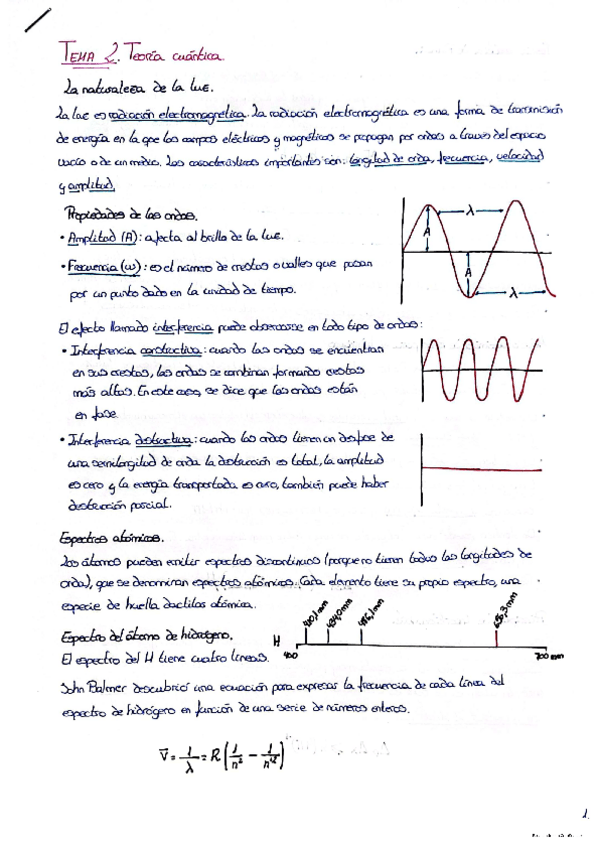 TEMA 2. Teoría cuántica.
La naturaleza de la luz.
La luz es radiación electromagnética. La radiación electromagnética es una forma de transmisión
de energía en la que los campos eléctricos y magnéticos se propagan por ondas a través del espacio
vacío o de un medio. Las características importantes son: longitud de onda, frecuencia, velocidad
y amplitud.
Propiedades de las ondas.
• Amplitud (A): afecta al brillo de la luz.
• Frecuencia (ω): es el número de crestas o valles que pasan
por un punto dado en la unidad de tiempo.
λ
A
A
λ
El efecto llamado interferencia puede observarse en todo tipo de ondas:
• Interferencia constructiva: cuando las ondas se encuentran
en sus crestas, las ondas se combinan formando crestas
más altas. En este caso, se dice que las ondas están
en fase.
• Interferencia destructiva: cuando las ondas tienen un desfase de
una semilongitud de onda la destrucción es total, la amplitud
es cero y la energía transportada es cero, también puede haber
destrucción parcial.
Espectros atómicos.
Los átomos pueden emitir espectros discontinuos (porque no tienen todas las longitudes de
onda), que se denominan espectros atómicos. Cada elemento tiene su propio espectro, una
especie de huella dactilar atómica.
Espectro del átomo de hidrógeno.
El espectro del H tiene cuatro líneas.
H
410,1nm
434,0nm
486,1nm
656,3nm
400
700 nm
John Balmer descubrió una ecuación para expresar la frecuencia de cada línea del
espectro de hidrógeno en función de una serie de números enteros.
v̄ = 1/λ = R(1/n² − 1/n'²)
1.